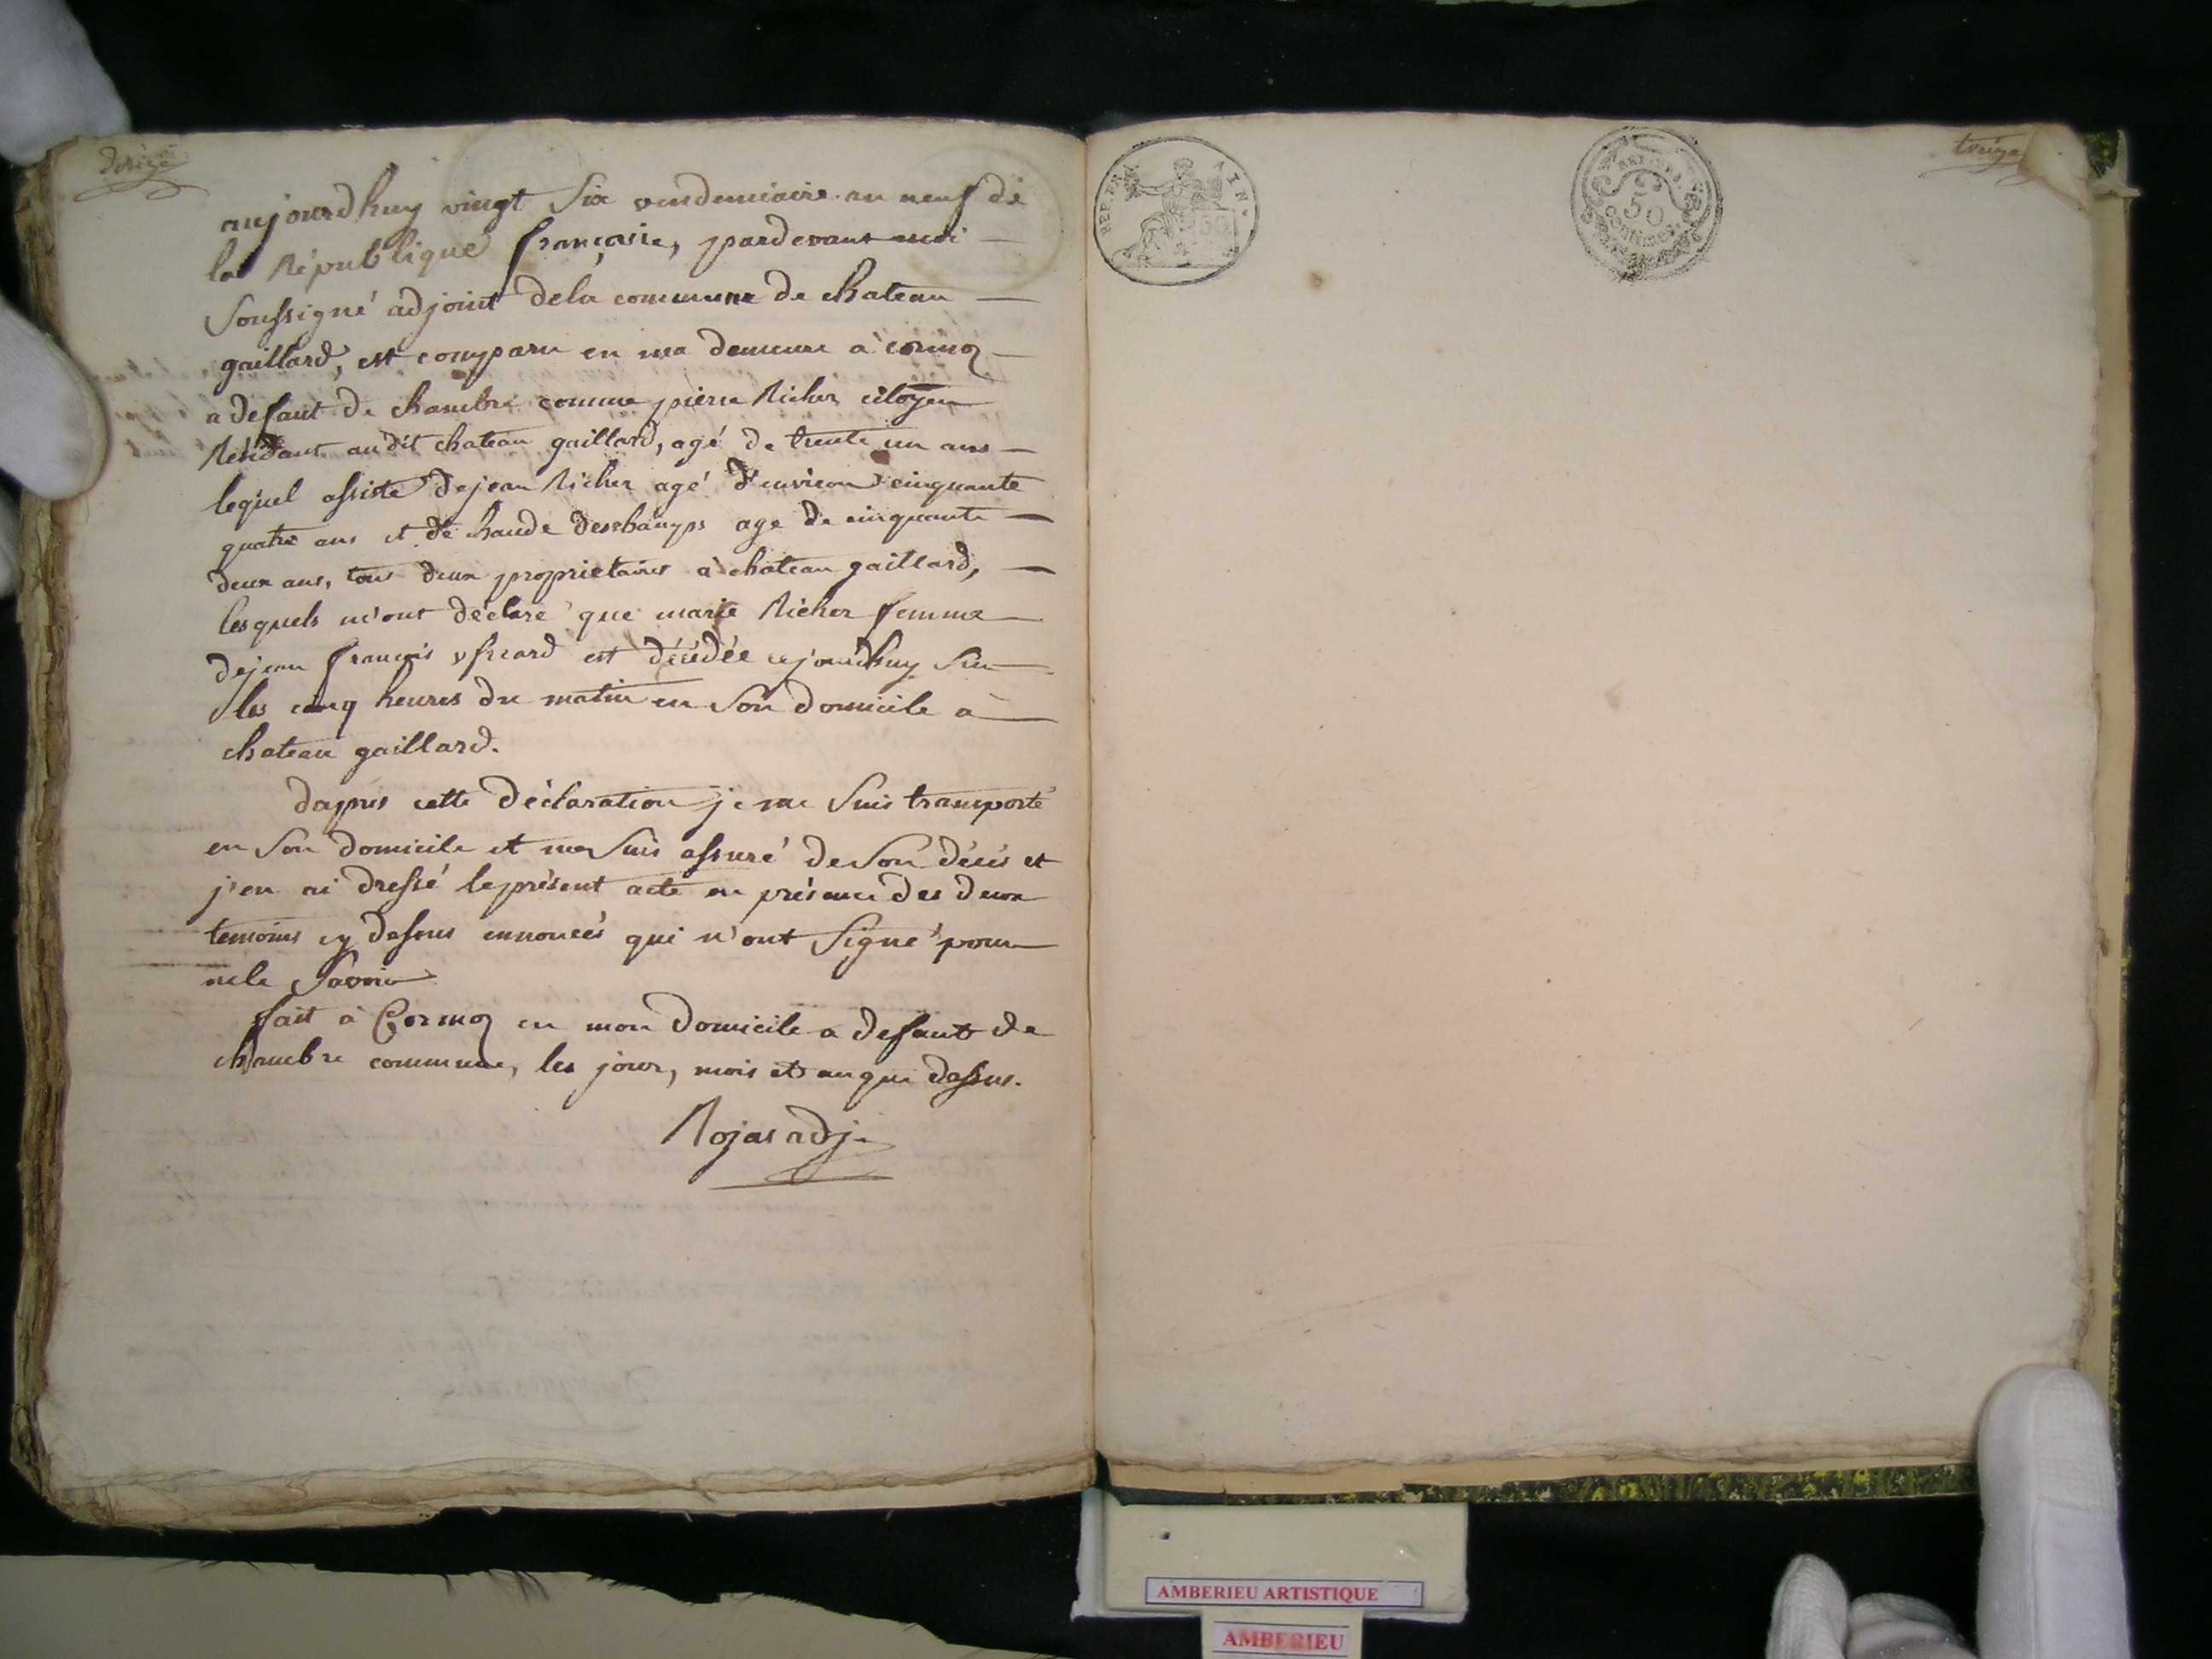 aujourdhuy vingt Six vendemiaire an neuf de
la République française, pardevant moi
Soussigné adjoint dela commune de chateau
gaillard, est comparu en ma demeure à cormoz
a defaut de chambre comme pierre Richer citoyen
Résidant audit chateau gaillard, agé de trente un ans
lequel assisté dejean Richer agé d'environ cinquante
quatre ans et de Deschamps age de cinquante
deux ans, tous deux proprietaires à chateau gaillard,
lesquels m'ont déclaré que marie Richer femme
dejean françois est décédée cejourdhuy Sur
les cinq heures du matin en Son domicile à
chateau gaillard.
dapres cette déclaration je me Suis transporté
en Son domicile et me Suis assuré deSon décès et
j'en ai dressé leprésent acte en présence des deux
temoins cy dessus ennoncés qui n'ont Signé pour
nele Savoir
fait à Cormoz en mon domicile a defaut de
chambre commune, les jour, mois et an que dessus.
Rojas adj.
REP. FRA.
AIN.
50
50
CENTIMES
AMBERIEU ARTISTIQUE
AMBERIEU